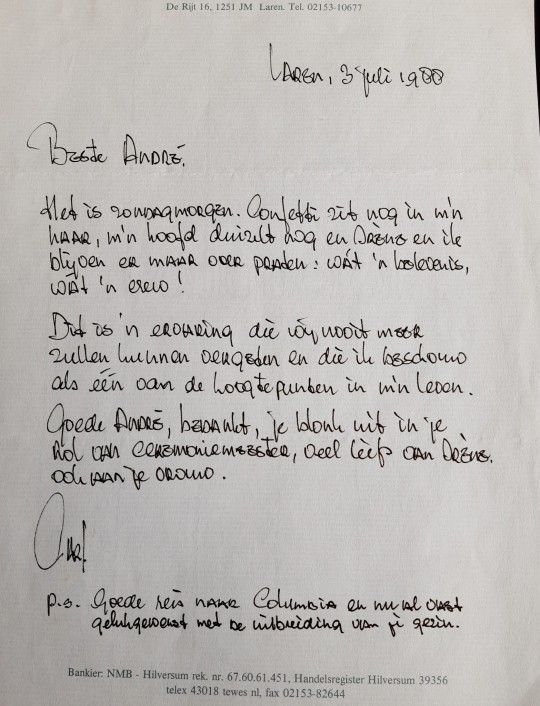 De Rijt 16, 1251 JM Laren. Tel. 02153-10677
Laren, 3 juli 1988
Beste André,
Het is zondagmorgen. Confetti zit nog in m'n
haar, m'n hoofd duizelt nog en Drène en ik
blijven er maar over praten: wát 'n belevenis,
wát 'n eer!
Dit is 'n ervaring die wij nooit meer
zullen kunnen vergeten en die ik beschouw
als één van de hoogtepunten in m'n leven.
Goede André, bedankt, je blonk uit in je
rol van ceremoniemeester, veel liefs aan Drène.
ook aan je vrouw.
p.s. Goede reis naar Columbia en nu al vast
gelukgewenst met de uitbreiding van je gezin.
Bankier: NMB - Hilversum rek. nr. 67.60.61.451, Handelsregister Hilversum 39356
telex 43018 tewes nl, fax 02153-82644